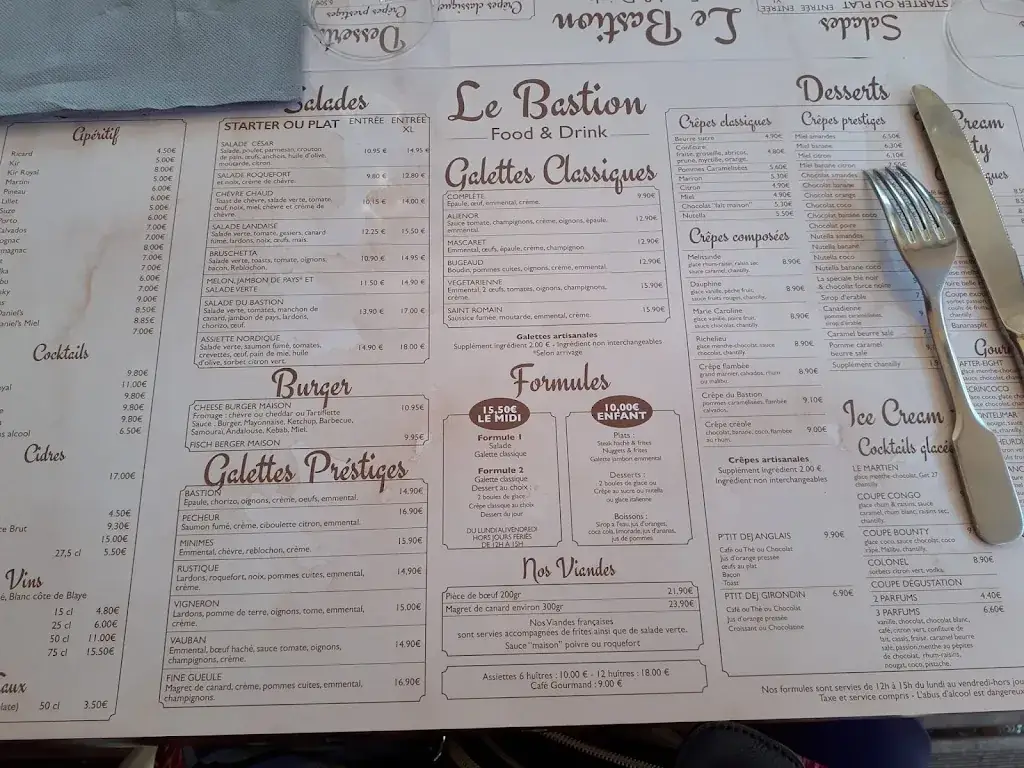 Le Bastion
Food & Drink
Apéritif
Ricard 4.50€
Kir 5.00€
Kir Royal 8.00€
Martini 5.00€
Pineau 6.00€
Lillet 6.00€
Suze 6.00€
Porto 6.00€
Calvados 7.00€
7.00€
8.00€
7.00€
7.00€
6.00€
7.00€
9.00€
8.50€
aniel's Miel 8.85€
7.00€
Cocktails
9.80€
11.00€
9.80€
9.80€
9.80€
alcool 6.50€
Cidres
17.00€
4.50€
Brut 9.30€
15.00€
27,5 cl 5.50€
Vins
Blanc côte de Blaye
15 cl 4.80€
25 cl 6.00€
50 cl 11.00€
75 cl 15.50€
50 cl 3.50€
Salades
STARTER OU PLAT ENTRÉE ENTRÉE XL
SALADE CESAR
Salade, poulet, parmesan, crouton de pain, œufs, anchois, huile d'olive, moutarde, citron. 10.95 € 14.95 €
SALADE ROQUEFORT
et noix, crème de chèvre. 9.80 € 12.80 €
CHÈVRE CHAUD
Toast de chèvre, salade verte, tomate, œuf, noix, miel, chèvre et crème de chèvre. 10.15 € 14.00 €
SALADE LANDAISE
Salade verte, tomate, gesiers, canard fumé, lardons, noix, œufs, maïs. 12.25 € 15.50 €
BRUSCHETTA
Salade verte, toasts, tomate, oignons, bacon, Reblochon. 10.90 € 14.95 €
MELON, JAMBON DE PAYS* ET SALADE VERTE 11.50 € 14.90 €
SALADE DU BASTION
Salade verte, tomates, manchon de canard, jambon de pays, lardons, chorizo, œuf. 13.90 € 17.00 €
ASSIETTE NORDIQUE
Salade verte, saumon fumé, tomates, crevettes, œuf, pain de mie, huile d'olive, sorbet citron vert. 14.90 € 18.00 €
Burger
CHEESE BURGER MAISON 10.95€
Fromage : chèvre ou cheddar ou Tartiflette
Sauce : Burger, Mayonnaise, Ketchup, Barbecue,
Samourai, Andalouse, Kebab, Miel.
FISCH BERGER MAISON 9.95€
Galettes Préstiges
BASTION 14.90€
Epaule, chorizo, oignons, crème, oeufs, emmental.
PECHEUR 16.90€
Saumon fumé, crème, ciboulette citron, emmental.
MINIMES 15.90€
Emmental, chèvre, reblochon, crème.
RUSTIQUE 14,90€
Lardons, roquefort, noix, pommes cuites, emmental, crème.
VIGNERON 15.00€
Lardons, pomme de terre, oignons, tome, emmental, crème.
VAUBAN 14.90€
Emmental, bœuf haché, sauce tomate, oignons, champignons, crème.
FINE GUEULE 16.90€
Magret de canard, crème, pommes cuites, emmental, champignons.
Galettes Classiques
COMPLÈTE 9.90€
Epaule, œuf, emmental, crème.
ALIENOR 12.90€
Sauce tomate, champignons, crème, oignons, épaule, emmental.
MASCARET 12.90€
Emmental, œufs, épaule, crème, champignon.
BUGEAUD 12.90€
Boudin, pommes cuites, oignons, crème, emmental.
VEGETARIENNE 15.90€
Emmental, 2 œufs, tomates, oignons, champignons, crème.
SAINT ROMAIN 15.90€
Saussice fumée, moutarde, emmental, crème.
Galettes artisanales
Supplément ingrédient 2.00 € - Ingredient non interchangeables
*Selon arrivage
Formules
15,50€
LE MIDI
Formule 1
Salade
Galette classique
Formule 2
Galette classique
Dessert au choix :
2 boules de glace
Crêpe classique au choix
Dessert du jour
DU LUNDI AU VENDREDI
HORS JOURS FERIÉS
DE 12H À 15H
10,00€
ENFANT
Plats :
Steak haché & frites
Nuggets & frites
Galette jambon emmental
Desserts :
2 boules de glace ou
Crêpe au sucre ou nutella
ou glace italienne
Boissons :
Sirop à l'eau, jus d'oranges,
coca cola, limonade, jus d'ananas,
jus de pommes
Nos Viandes
Pièce de bœuf 200gr 21.90€
Magret de canard environ 300gr 23,90€
Nos Viandes françaises
sont servies accompagnées de frites ainsi que de salade verte.
Sauce "maison" poivre ou roquefort
Assiettes 6 huîtres : 10.00 € - 12 huîtres : 18.00 €
Café Gourmand : 9.00 €
Desserts
Crêpes classiques
Beurre sucre 4.90€
Confiture
fraise, groseille, abricot, prune, myrtille, orange. 4.80€
Pommes Caramélisées 5.60€
Marron 5.30€
Citron 4.90€
Miel 4.90€
Chocolat "fait maison" 5.30€
Nutella 5.50€
Crêpes composées
Melissande 8.90€
glace rhum-raisin, raisin sec, sauce caramel, chantilly.
Dauphine 8.90€
glace vanille, pêche fruit, sauce fruits rouges, chantilly.
Marie Caroline 8.90€
glace vanille, poire fruit, sauce chocolat chantilly.
Richelieu 8.90€
glace menthe-chocolat, sauce chocolat, chantilly
Crêpe flambée 8.90€
grand marnier, calvados, rhum ou malibu
Crêpe du Bastion 9.10€
pommes caramelisées, flambée calvados.
Crêpe créole 9.00€
chocolat, banane, coco, flambée au rhum.
Crêpes artisanales
Supplément ingrédient 2.00 €
Ingredient non interchangeables
P'TIT DEJ ANGLAIS 9.90€
Café ou Thé ou Chocolat
Jus d'orange pressée
œufs au plat
Bacon
Toast
P'TIT DEJ GIRONDIN 6.90€
Café ou Thé ou Chocolat
Jus d'orange pressée
Croissant ou Chocolatine
Crêpes prestiges
Miel amandes 6.50€
Miel banane 6.30€
Miel citron 6.10€
Miel banane citron
Chocolat amandes
Chocolat banane
Chocolat orange
Chocolat coco
Chocolat banane coco
Chocolat poire
Nutella amandes
Nutella banane
Nutella coco
Nutella banane coco
La spéciale ble noir
& chocolat force noire
Sirop d'erable
Canadienne
pommes caramélisées, sirop d'erable
Caramel beurre salé
Pomme caramel
beurre salé
Supplement chantilly
Ice Cream
Cocktails glacés
LE MARTIEN
glace menthe-chocolat, Get 27 chantilly.
COUPE CONGO
glace rhum & raisins, sauce caramel, rhum blanc, raisins sec, chantilly.
COUPE BOUNTY
glace coco, sauce chocolat, coco râpe, Malibu, chantilly.
COLONEL 8.90€
sorbets citron vert, vodka.
COUPE DÉGUSTATION
2 PARFUMS 4.40€
3 PARFUMS 6.60€
vanille, chocolat, chocolat blanc, café, citron vert, confiture de lait, cassis, fraise, caramel beurre salé, passion, menthe au pépites de chocolat, rhum-raisins, nougat, coco, pistache.
Cream
Bananasplit
AFTER-EIGHT
Nos formules sont servies de 12h à 15h du lundi au vendredi-hors jou
Taxe et service compris - L'abus d'alcool est dangereux
Le Bastion
Salades
STARTER OU PLAT ENTRÉE ENTRÉE
Desserts
Crêpes prestiges
Crêpes classiques